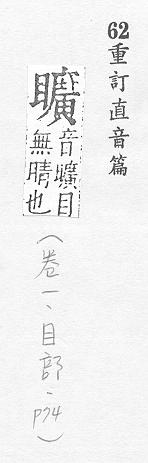 62重訂直音篇
矌
音曠目
無睛也
(卷一、目部、p74)